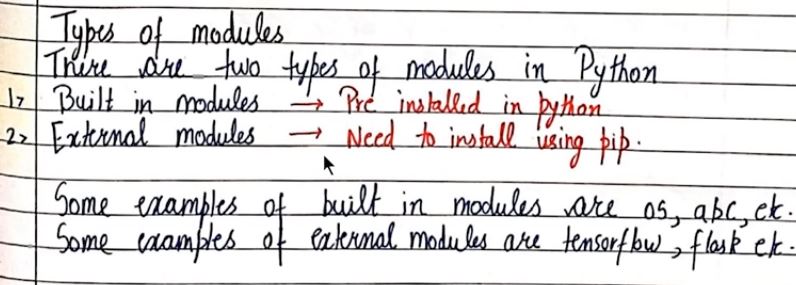 Types of modules
There are two types of modules in Python
1> Built in modules → Pre installed in python
2> External modules → Need to install using pip.
Some examples of built in modules are os, abc, etc.
Some examples of external modules are tensorflow, flask etc.